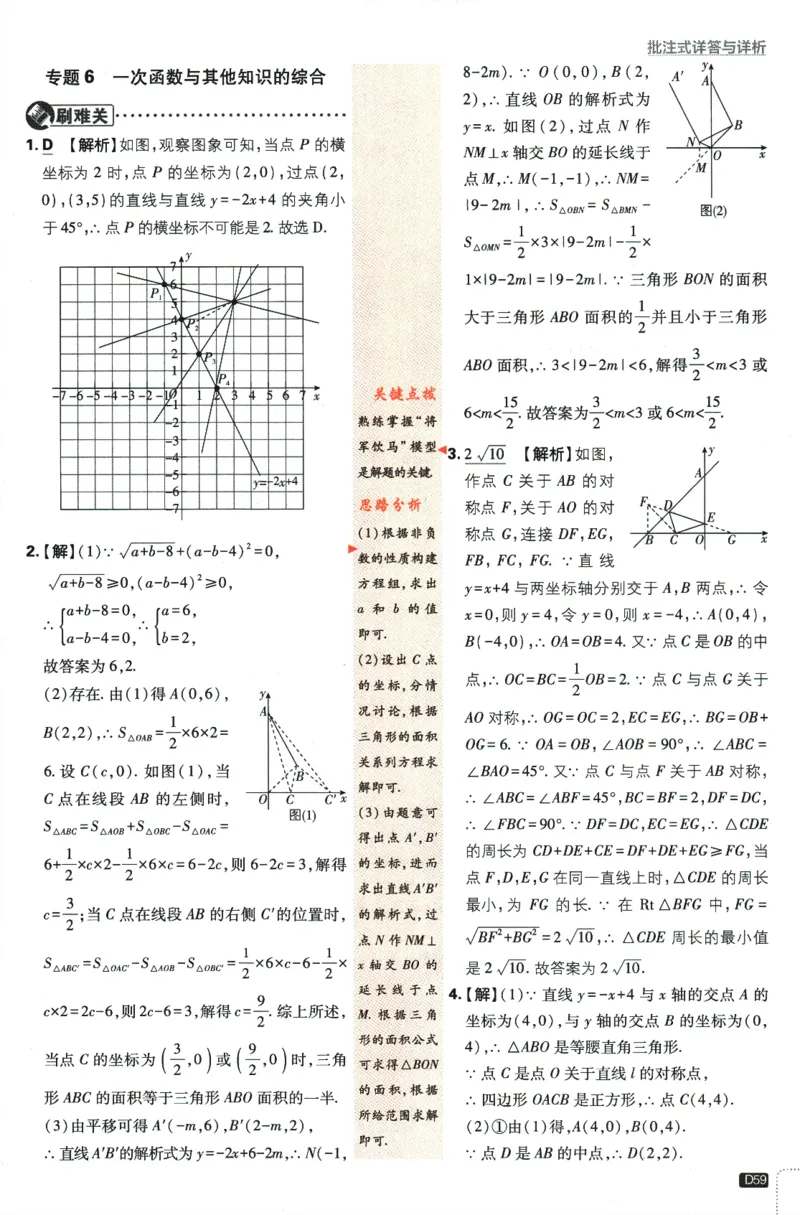 批注式详答与详析
专题6 一次函数与其他知识的综合
刷难关
1. D 【解析】如图,观察图象可知,当点 P 的横
坐标为 2 时,点 P 的坐标为(2,0),过点(2,
0),(3,5)的直线与直线 y=-2x+4 的夹角小
于45°,∴点 P 的横坐标不可能是2.故选 D.
y
7
6
P₁
5
4
P₂
3
2
P₃
1
P₄
-7 -6 -5 -4 -3 -2 -1 O 1 2 3 4 5 6 7 x
-1
-2
-3
-4
-5
y=-2x+4
-6
-7
2.【解】(1)∵ √(a+b-8)+(a-b-4)²=0,
√(a+b-8)≥0,(a-b-4)²≥0,
∴ {a+b-8=0, a-b-4=0, ∴ {a=6, b=2,
故答案为6,2.
(2)存在.由(1)得 A(0,6),
B(2,2),∴S△OAB=1/2×6×2=
6.设 C(c,0).如图(1),当
C 点在线段 AB 的左侧时,
y
A
B
O C C' x
图(1)
S△ABC=S△AOB+S△OBC-S△OAC=
6+1/2×c×2-1/2×6×c=6-2c,则 6-2c=3,解得
c=3/2;当 C 点在线段 AB 的右侧 C'的位置时,
S△ABC'=S△OAC'-S△AOB-S△OBC'=1/2×6×c-6-1/2×
c×2=2c-6,则2c-6=3,解得c=9/2.综上所述,
当点 C 的坐标为(3/2,0)或(9/2,0)时,三角
形 ABC 的面积等于三角形 ABO 面积的一半.
(3)由平移可得 A'(-m,6),B'(2-m,2),
∴直线A'B'的解析式为 y=-2x+6-2m,∴N(-1,
关键点拨
熟练掌握“将
军饮马”模型
是解题的关键.
思路分析
(1)根据非负
数的性质构建
方程组,求出
a 和 b 的值
即可.
(2)设出 C 点
的坐标,分情
况讨论,根据
三角形的面积
关系列方程求
解即可.
(3)由题意可
得出点 A',B'
的坐标,进而
求出直线A'B'
的解析式,过
点 N 作 NM⊥
x 轴交 BO 的
延长线于点
M.根据三角
形的面积公式
可求得△BON
的面积,根据
所给范围求解
即可.
8-2m).∵ O(0,0),B(2,
2),∴直线 OB 的解析式为
y=x.如图(2),过点 N 作
NM⊥x 轴交BO 的延长线于
点M,∴M(-1,-1),∴NM=
|9-2m|,∴S△OBN=S△BMN-
A' y
A
B
N
O x
M
图(2)
S△OMN=1/2×3×|9-2m|-1/2×
1×|9-2m|=|9-2m|.∵ 三角形 BON 的面积
大于三角形 ABO 面积的1/2并且小于三角形
ABO 面积,∴3<|9-2m|<6,解得3/2<m<3 或
6<m<15/2.故答案为3/2<m<3 或6<m<15/2.
3. 2√10 【解析】如图,
作点 C 关于 AB 的对
称点 F,关于 AO 的对
称点 G,连接 DF,EG,
FB,FC,FG.∵直线
y
A
F D
E
B C O G x
y=x+4 与两坐标轴分别交于 A,B 两点,∴令
x=0,则 y=4,令 y=0,则 x=-4,∴A(0,4),
B(-4,0),∴OA=OB=4.又∵点C是OB的中
点,∴OC=BC=1/2OB=2.∵点 C 与点 G关于
AO 对称,∴OG=OC=2,EC=EG,∴BG=OB+
OG=6.∵ OA=OB,∠AOB=90°,∴ ∠ABC=
∠BAO=45°.又∵ 点 C 与点 F 关于 AB 对称,
∴ ∠ABC=∠ABF=45°,BC=BF=2,DF=DC,
∴∠FBC=90°.∵ DF=DC,EC=EG,∴ △CDE
的周长为 CD+DE+CE=DF+DE+EG≥FG,当
点 F,D,E,G在同一直线上时,△CDE 的周长
最小,为 FG 的长.∵ 在 Rt△BFG 中,FG=
√(BF²+BG²)=2√10,∴ △CDE 周长的最小值
是 2√10.故答案为 2√10.
4.【解】(1)∵ 直线 y=-x+4 与 x 轴的交点 A 的
坐标为(4,0),与 y 轴的交点 B 的坐标为(0,
4),∴△ABO 是等腰直角三角形.
∵点 C 是点 O 关于直线 l 的对称点,
∴四边形 OACB 是正方形,∴点 C(4,4).
(2)①由(1)得,A(4,0),B(0,4).
∵点 D 是 AB 的中点,∴D(2,2).
D59